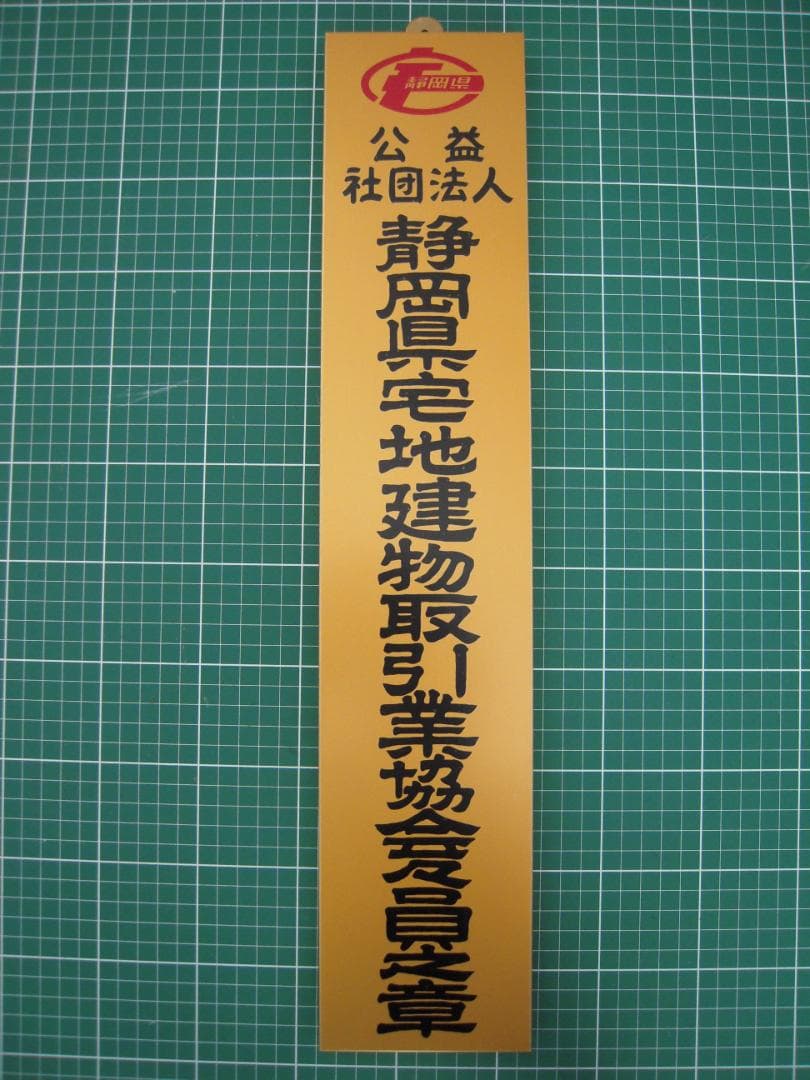 静岡県
公益
社団法人
静岡県宅地建物取引業協会々員之章